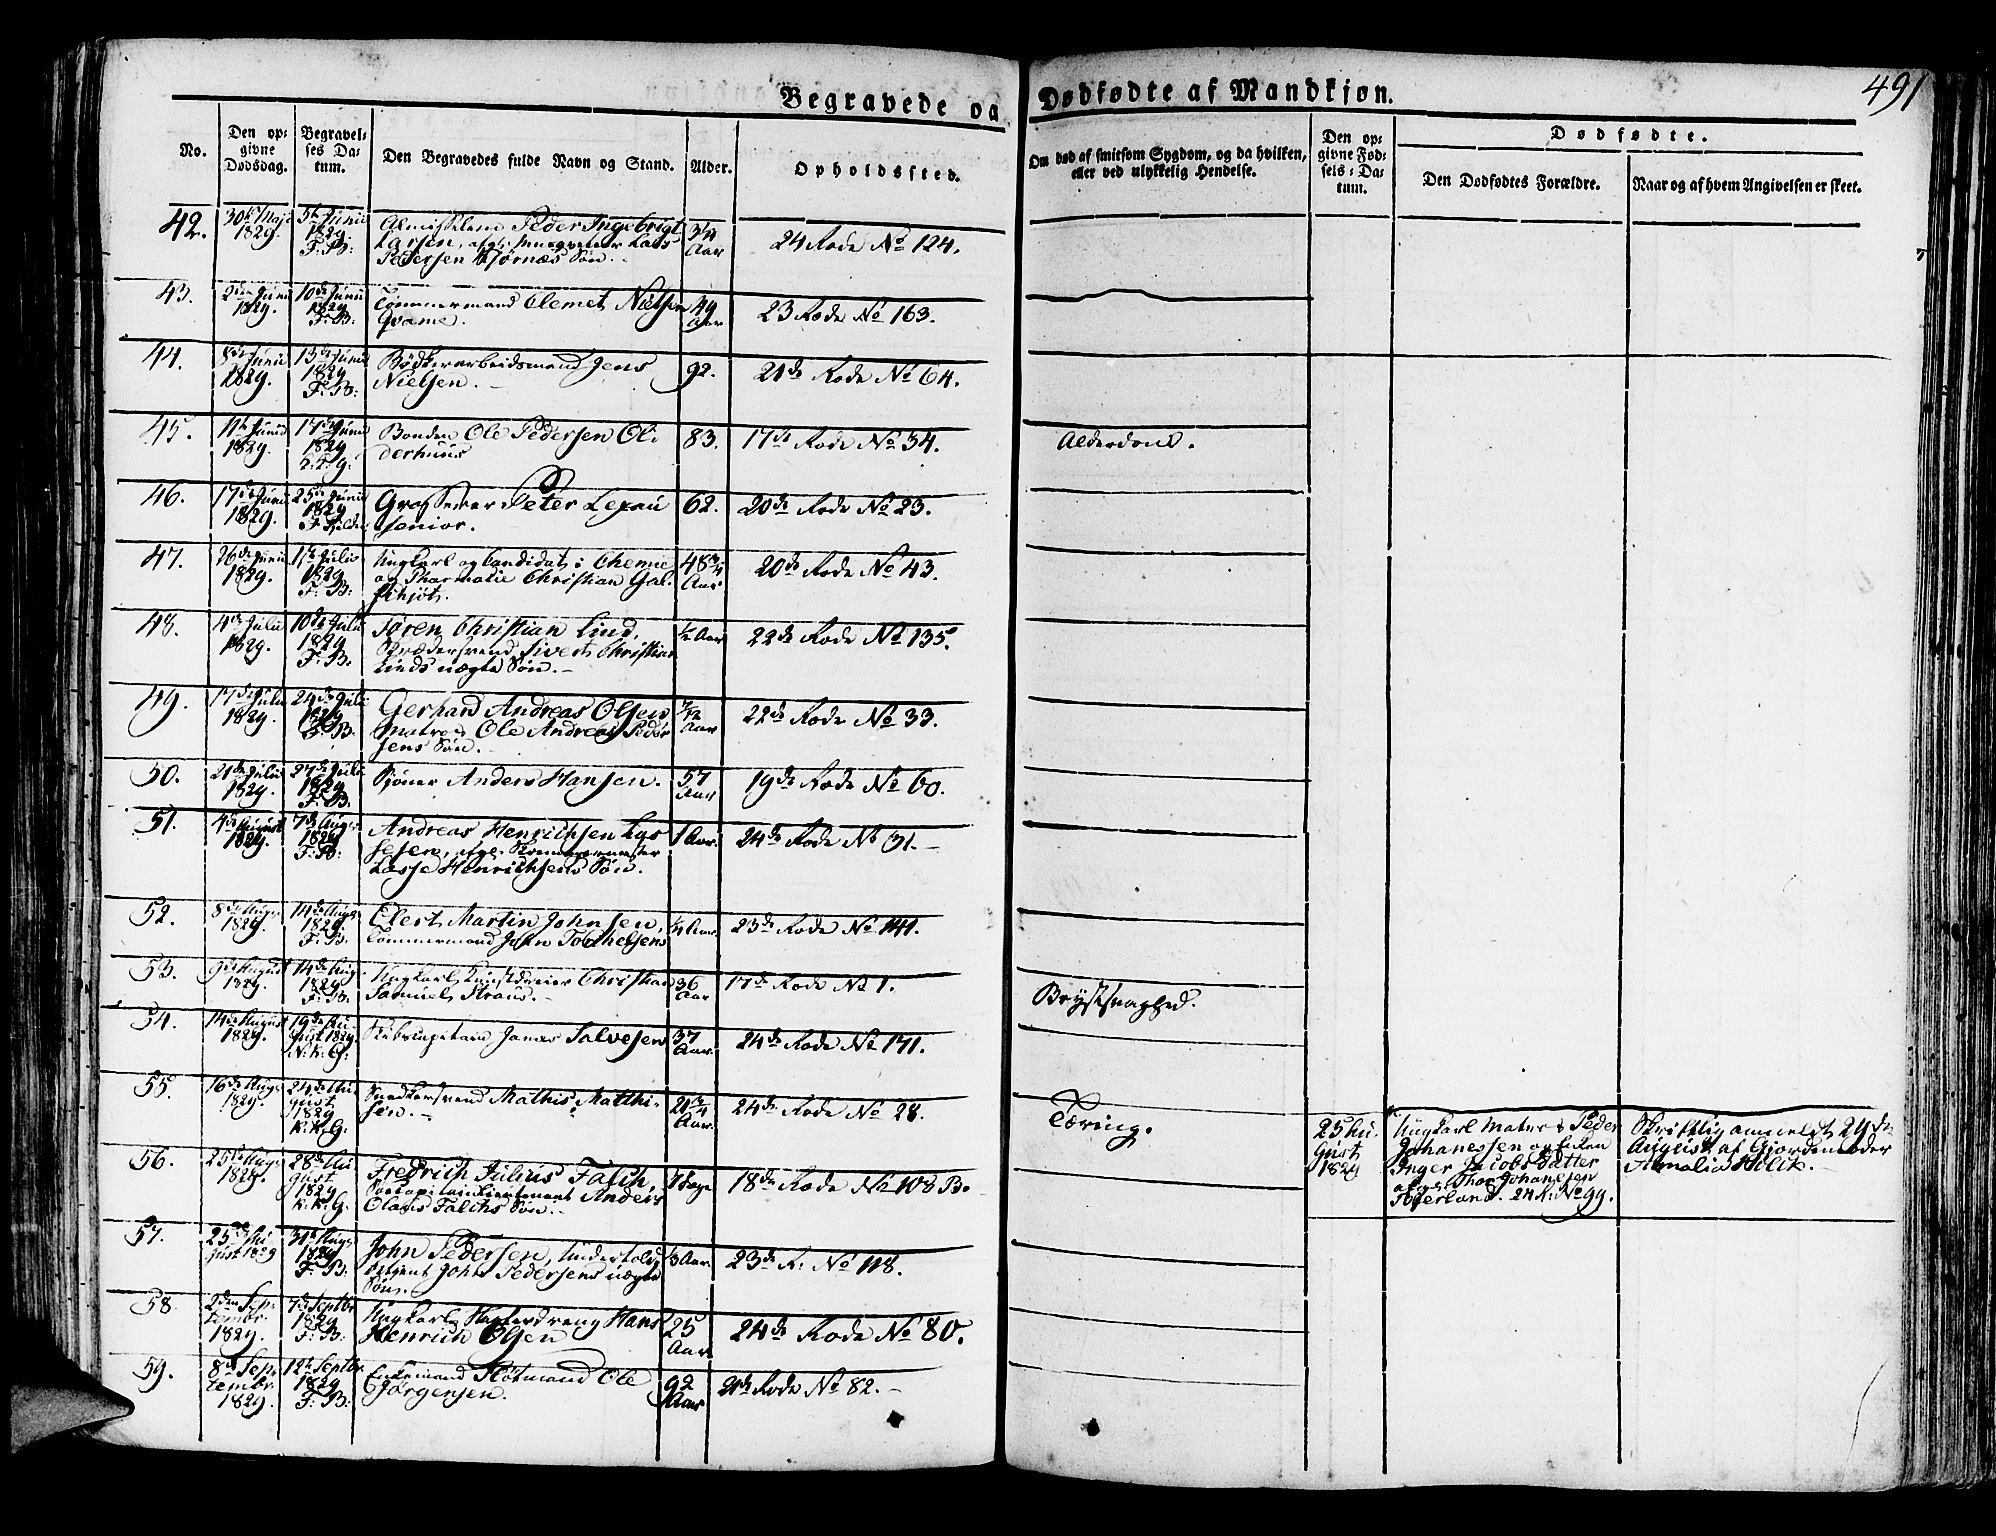 491
Begravede og Dødfødte af Mandkjøn.
No.
Den op=
givne
Dødsdag.
Begravel=
ses Da=
tum.
Den Begravedes fulde Navn og Stand.
Alder.
Opholdssted.
Om død af smitsom Sygdom, og da hvilken,
eller ved ulykkelig Hendelse.
Den op=
givne Fød=
sels=Da=
tum.
Dødfødte.
Den Dødfødtes Forældre.
Naar og af hvem Angivelsen er skeet.
42.
30te Maji
1829.
5te Junii
1829.
F. B.
Peder Ingebrigt
Larsen, Lars
Pedersen Bjørnæs Søn.
3/4
Aar
24 Rode No 124.
43.
2den Junii
1829.
10de Junii
1829
F. B.
Tømmermand Clemet Nielsen
Qvame.
49
Aar
23 Rode No 163.
44.
8de Junii
1829.
13de Junii
1829
F. B:
Bødkerarbeidsmand Jens
Nielsen.
92.
21de Rode No 64.
45.
11te Junii
1829.
17de Junii
1829
Bonden Ole Pedersen Ol
derhuus
83.
17de Rode No 34.
Alderdom.
46.
17de Junii
1829.
25de Junii
1829
Grosserer Peter Lexau
senior.
62.
20de Rode No 23.
47.
26de Junii
1829.
1te Julii
1829
F. B:
Ungkarl og Candidat i Chemie
og Pharmatie Christian Gal
48 3/4
Aar
20de Rode No 43.
48.
4de Julii
1829.
10de Julii
1829
F: B:
Søren Christian Lind,
Skrædersvend Sivert Christian
Linds ægte Søn.
1/2 Aar
22de Rode No 135.
49.
17de Julii
1829.
24de Julii
1829
F. B.
Gerhard Andreas Olsen
Matros Ole Andreas Peder
sens Søn.
7/12
Aar
22de Rode No 33.
50.
21de Julii
1829.
27de Julii
1829
F. B.
Anders Hansen.
57
Aar
19de Rode No 60.
51.
4de August
1829.
7de Aug:
1829
F: B:
Andreas Henrichsen Las
sesen,
Lasse Henrichsens Søn.
1 Aar.
24de Rode No 31.
52.
8de Aug:
1829.
14de Aug:
1829.
F. B.
Elert Martin Johnsen,
Tømmermand John Torkelsens
1/4 Aar.
23de Rode No 141.
53.
9de August
1829.
14de Aug:
1829
F. B.
Ungkarl Kunstdreier Christian
Samuel Strand.
36
Aar
17de Rode No 1.
Brystsvaghed.
54.
14de August
1829.
19de Au
gust 1829.
N. K. G:
Skibscapitain Jonas Salvesen
37
Aar.
24de Rode No 171.
55.
16de Aug:
1829.
24de Au
gust
1829
K. K. G:
Snedkersvend Mathis Matthi=
sen.
21 3/4
Aar.
24de Rode No 28.
Tæring.
25 Au.
gust
1829
Ungkarl Matros Peder
Johanessen og Enken
Inger Jacobs Datter
Thor Johanesen
24 R: No 99.
Skriftlig anmeldt 29de
August af Gjordemoder
Amalia Holck.
56.
25de Aug:
1829.
28de Au
gust
1829
K. K. G.
Fredrich Julius Falch,
Søecapitainlieutenant Anders
Olaus Falchs Søn.
7 Dage
18de Rode No 108 B.
57.
25de Au
gust 1829
31te Aug:
1829
F. B:
John Pedersen, Undertold
betjent John Pedersens ægte
Søn.
3 Aar.
23de R: No 118.
58.
2den Sep=
tembr.
1829.
7de Septbr
1829
F. B:
Ungkarl Hans
Henrich Olsen
25
Aar
24de Rode No 80.
59.
8de Sep=
tembr.
1829.
12te Septbr.
1829
F: B:
Enkemand Ole
Jørgensen.
92
Aar
21de Rode No 82.